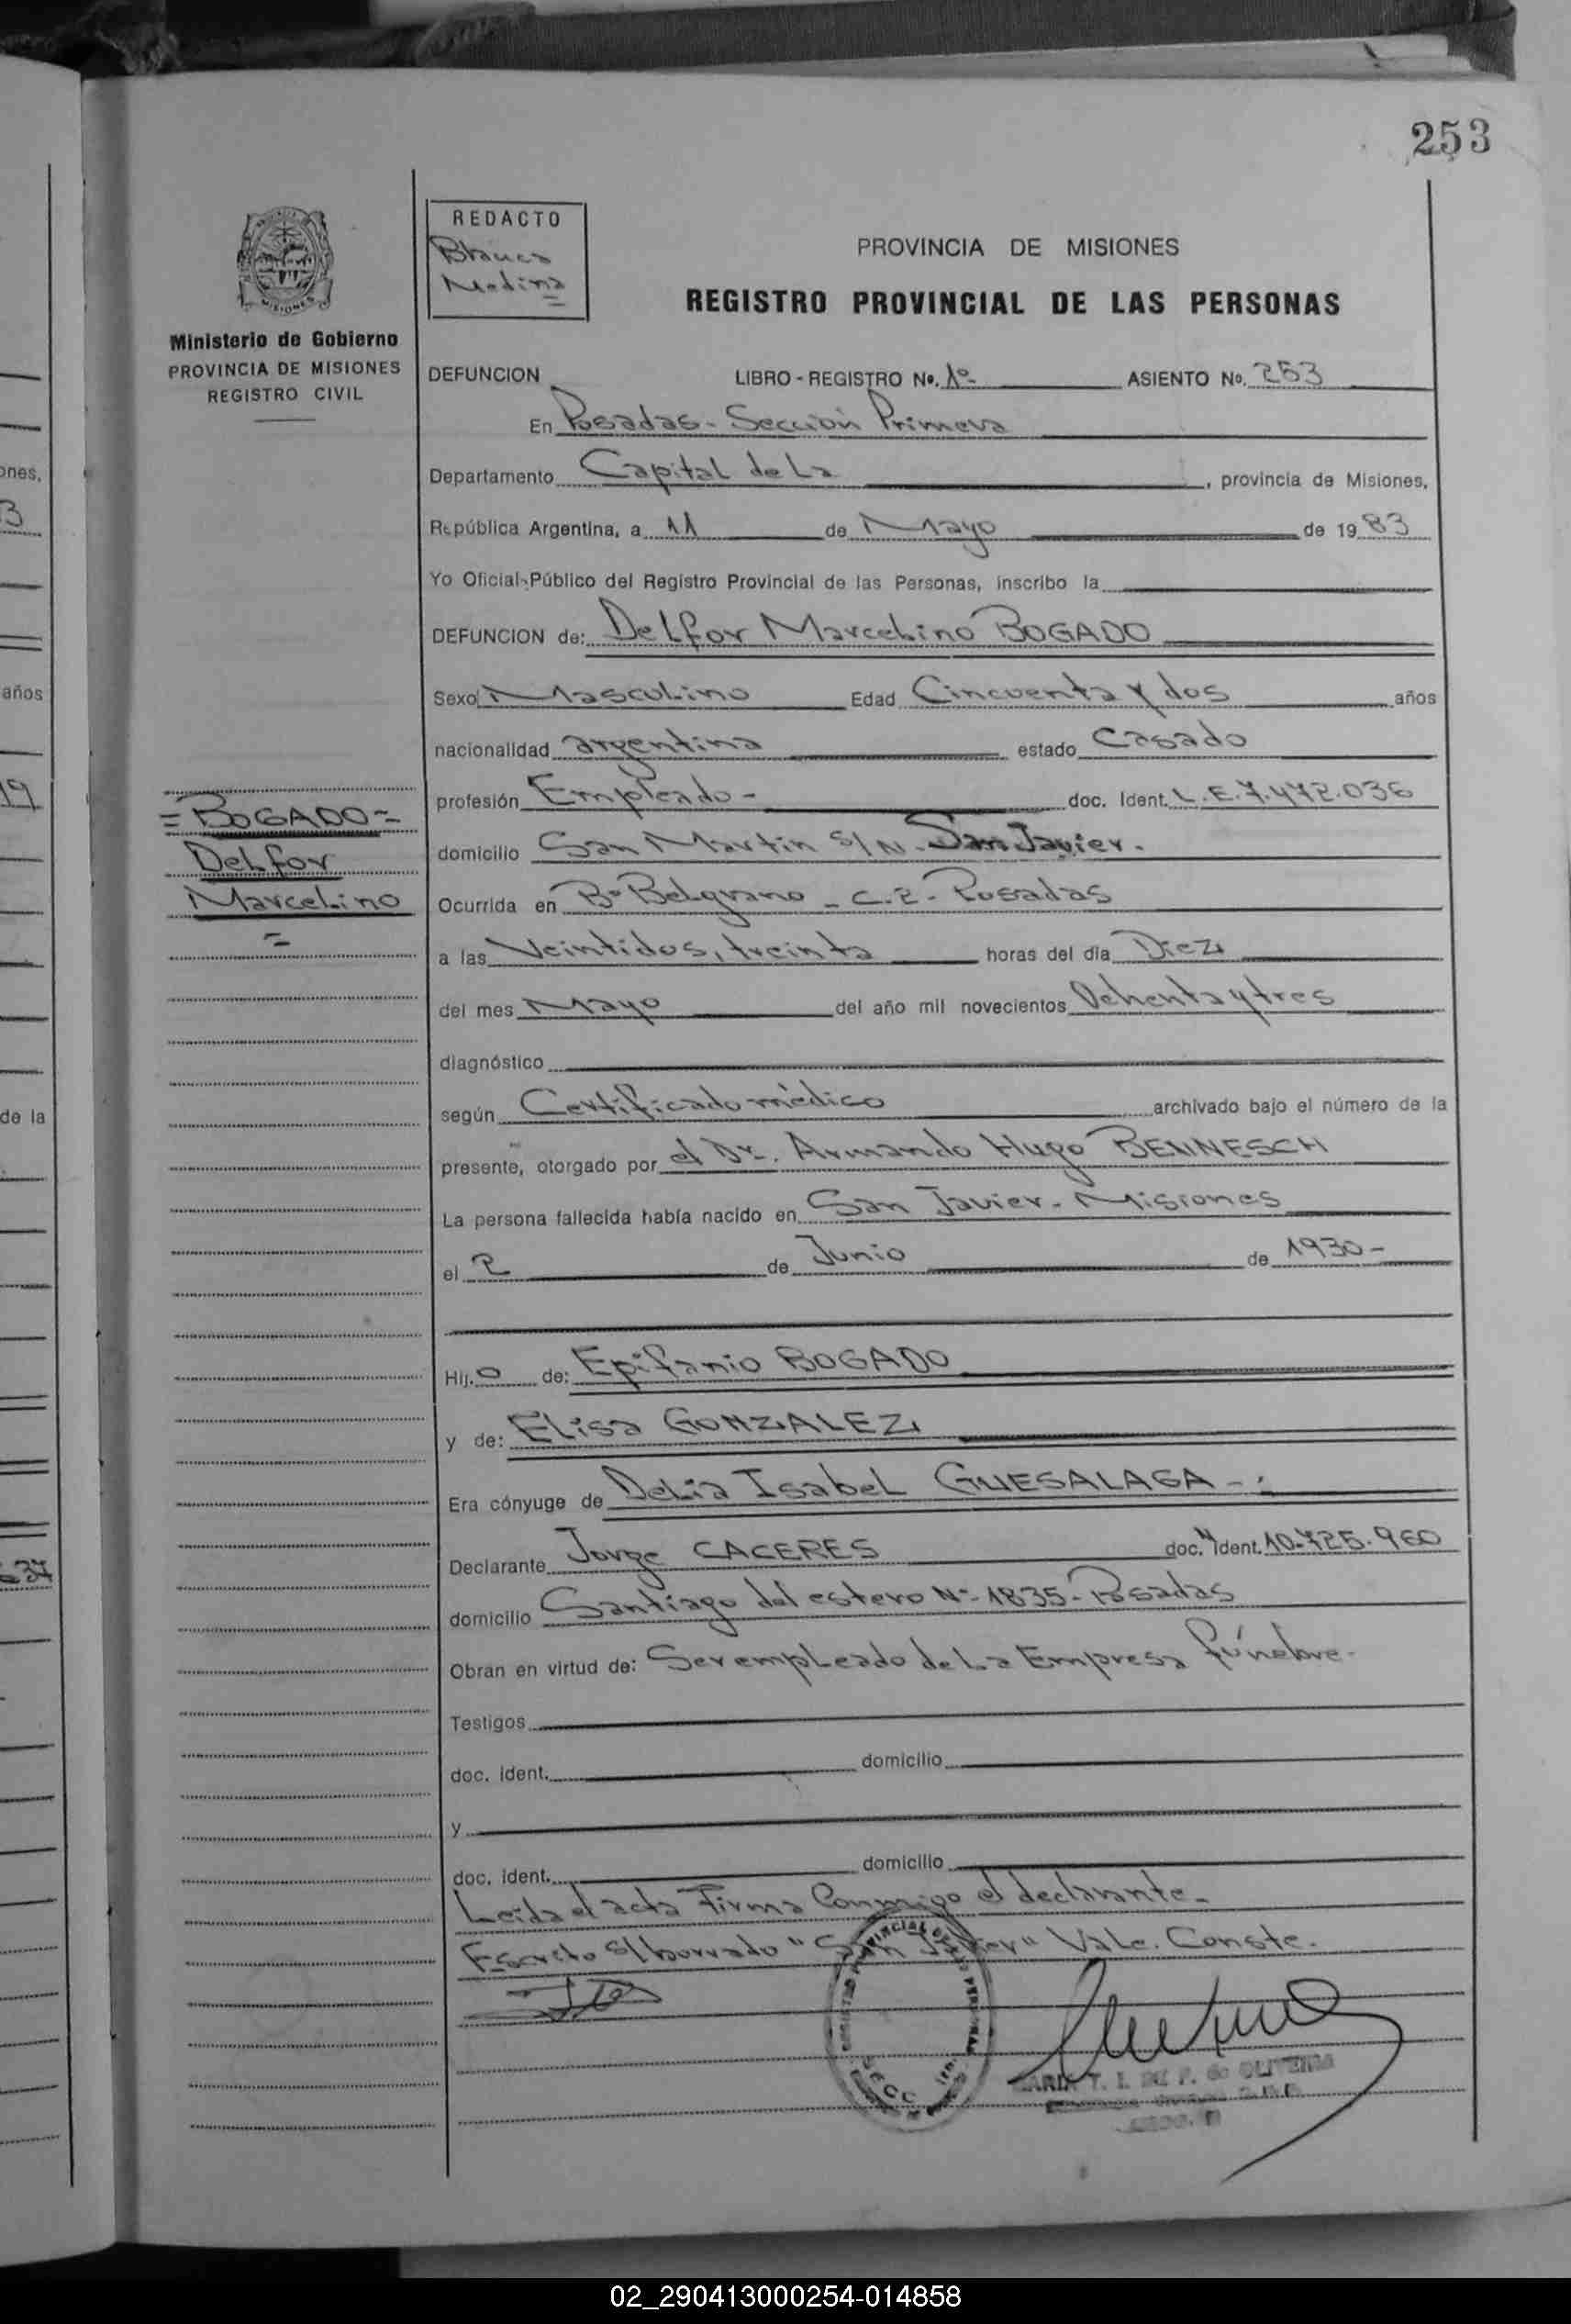 253
REDACTO
Blanca
Medina
PROVINCIA DE MISIONES
REGISTRO PROVINCIAL DE LAS PERSONAS
MISIONES
Ministerio de Gobierno
PROVINCIA DE MISIONES
REGISTRO CIVIL
DEFUNCION LIBRO - REGISTRO Nº. 1º ASIENTO Nº. 253
En Posadas - Sección Primera
Departamento Capital de La, provincia de Misiones,
República Argentina, a 11 de Mayo de 1983
Yo Oficial Público del Registro Provincial de las Personas, inscribo la
DEFUNCION de: Delfor Marcelino BOGADO
Sexo Masculino Edad Cincuenta y dos años
nacionalidad argentina estado Casado
profesión Empleado - doc. Ident. L.E. 7.472.036
= BOGADO =
Delfor
Marcelino
=
domicilio San Martin S/N - San Javier.
Ocurrida en Bº Belgrano - C.2 - Posadas
a las Veintidos, treinta horas del día Diez
del mes Mayo del año mil novecientos Ochenta y tres
diagnóstico
según Certificado médico archivado bajo el número de la
presente, otorgado por el Dr. Armando Hugo BENNESCH
La persona fallecida había nacido en San Javier - Misiones
el 2 de Junio de 1930 -
Hijo de: Epifanio BOGADO
y de: Elisa GONZALEZ
Era cónyuge de Delia Isabel GUESALAGA - :
Declarante Jorge CACERES doc. Ident. 10.725.960
domicilio Santiago del estero Nº 1835 - Posadas
Obran en virtud de: Ser empleado de La Empresa fúnebre -
Testigos
doc. ident. domicilio
y
doc. ident. domicilio
Leida el acta Firma Conmigo el declarante -
Escrito S/borrado "San Javier" Vale. Conste.
de OLIVEIRA
ones,
3
años
19
de la
37
02_290413000254-014858